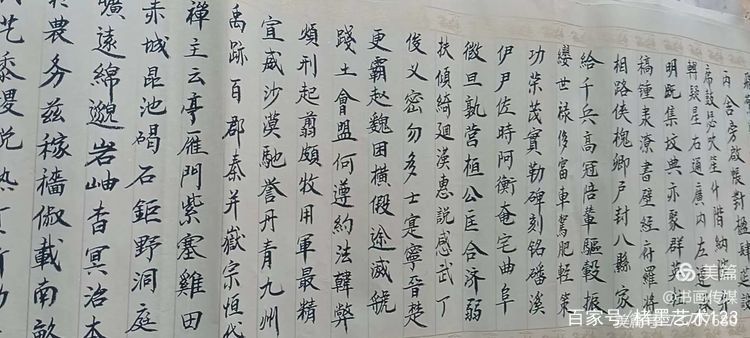 丙舍旁啟帳對楹肆
席鼓瑟笙升階納
轉疑星右通廣内左達
明既集墳典亦聚群英
稿鍾隶漆書壁經府羅將
相路俠槐卿户封八縣家
給千兵高冠陪輦驅轂振
纓世祿侈富車駕肥輕策
功茂實勒碑刻銘磻溪
伊尹佐時阿衡奄宅曲阜
微旦孰營桓公匡合济弱
扶傾綺迴漢惠說感武丁
俊乂密勿多士寔寧晉楚
更霸赵魏困橫假途滅虢
踐土會盟何遵約法韓弊
煩刑起翦頗牧用軍最精
宣威沙漠馳誉丹青九州
禹跡百郡秦并嶽宗恒岱
禪主云亭雁門紫塞雞田
赤城昆池碣石鉅野洞庭
曠遠綿邈岩岫杳冥治本
於農务兹稼穡俶載南畝
艺黍稷税熟貢新
美篇
@书画传媒
百家号/楮墨艺术133